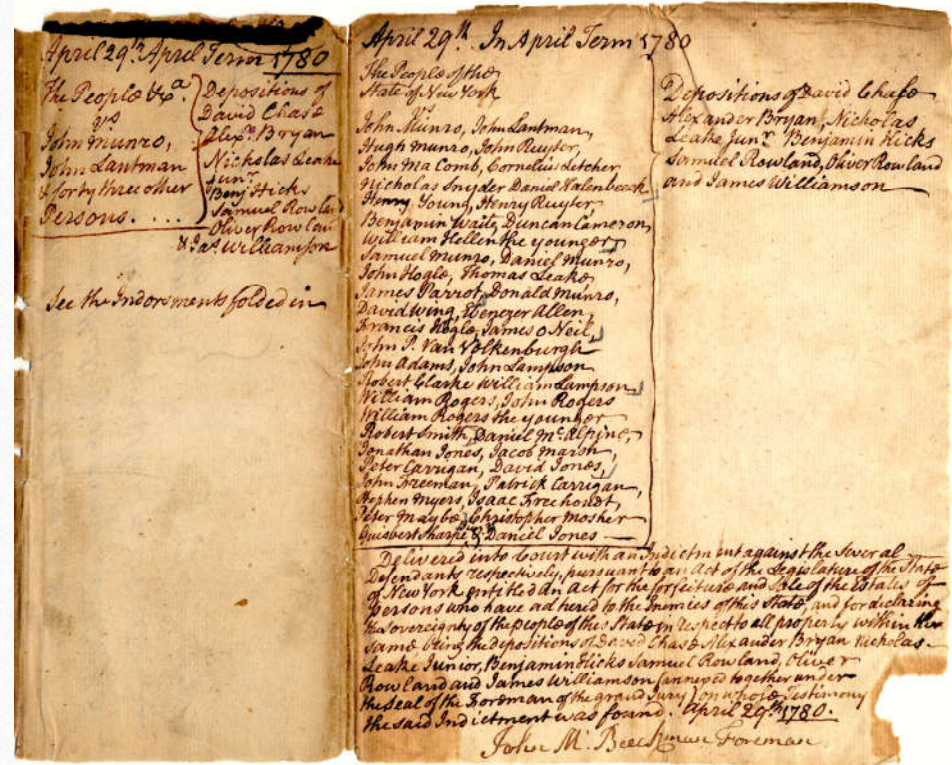 April 29th April Term 1780
The People &ca.
vs
John Munro,
John Lantman
& forty three other
Persons. . . . .
Depositions of
David Chase
Alexr. Bryan
Nicholas Leake
Junr.
Benj Hicks
Samuel Rowland
Oliver Rowland
& Jas. Williamson
See the Indorsments folded in
April 29th. In April Term 1780
The People of the
State of New York
vs
John Munro, John Lantman,
Hugh Munro, John Ruyter,
John Ma Comb, Cornelius Letcher
Nicholas Snyder Daniel Halenbeeck
Henry Young, Henry Ruyter
Benjamin Waite, Duncan Cameron,
William Hellen the younger
Samuel Munro, Daniel Munro,
John Hogle, Thomas Leake,
James Parrot, Donald Munro,
David Wing, Ebenezer Allen,
Francis Hogle, James O Neil,
John P. Van Volkenburgh
John Adams, John Lampson
Robert Clarke William Lampson,
William Rogers, John Rogers
William Rogers the younger
Robert Smith, Daniel Mc.Alpine,
Jonathan Jones, Jacob Marsh,
Peter Carrigan, David Jones,
John Freeman, Patrick Carrigan,
Stephen Myers, Isaac Freehoudt,
Peter Maybe, Christopher Mosher
Guisbert Sharpe & Daniel Jones
Depositions of David Chase
Alexander Bryan, Nicholas
Leake Junr. Benjamin Hicks
Samuel Rowland, Oliver Rowland
and James Williamson
Delivered into Court with an Indictment against the several
Defendants respectively, pursuant to an Act of the Legislature of the State
of New York entitled an Act for the forfeiture and Sale of the Estates of
persons who have adhered to the Enemies of this State, and for declaring
the sovereignty of the people of this State in respect to all property within the
same, being the depositions of David Chase Alexander Bryan Nicholas
Leake Junior, Benjamin Hicks Samuel Rowland, Oliver
Rowland and James Williamson (annexed together under
the seal of the Foreman of the grand Jury) on whose Testimony
the said Indictment was found. April 29th. 1780.
John M. Beeckman Foreman